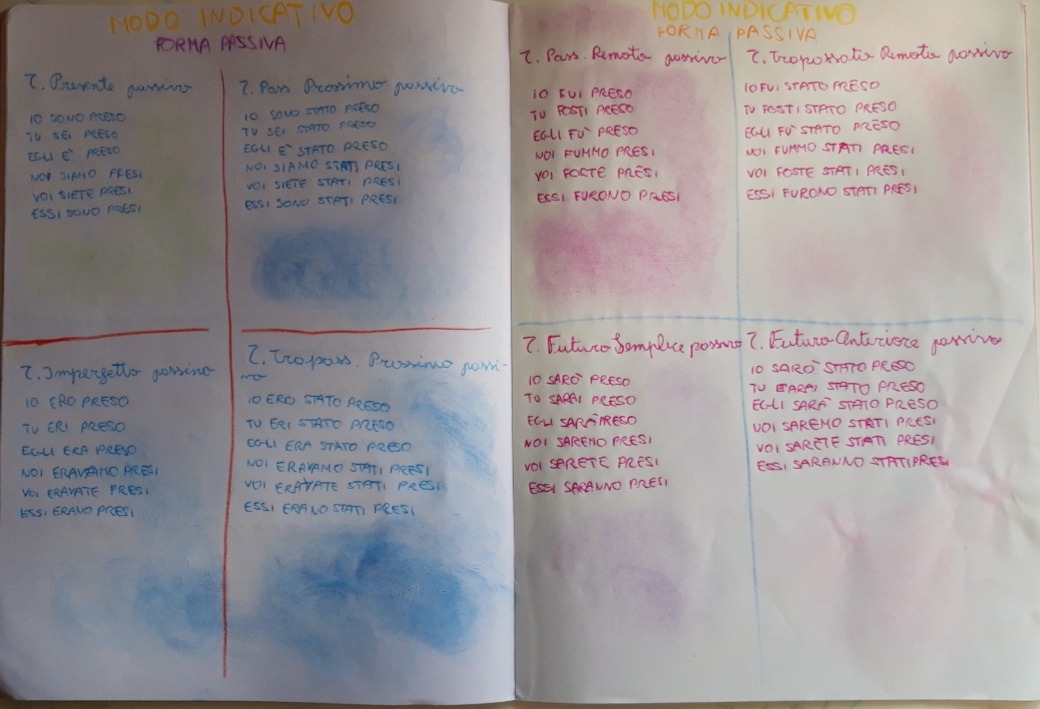 MODO INDICATIVO
FORMA PASSIVA
T. Presente passivo
IO SONO PRESO
TU SEI PRESO
EGLI È PRESO
NOI SIAMO PRESI
VOI SIETE PRESI
ESSI SONO PRESI
T. Pass. Prossimo passivo
IO SONO STATO PRESO
TU SEI STATO PRESO
EGLI È STATO PRESO
NOI SIAMO STATI PRESI
VOI SIETE STATI PRESI
ESSI SONO STATI PRESI
T. Imperfetto passivo
IO ERO PRESO
TU ERI PRESO
EGLI ERA PRESO
NOI ERAVAMO PRESI
VOI ERAVATE PRESI
ESSI ERANO PRESI
T. Trapass. Prossimo passi-
vo
IO ERO STATO PRESO
TU ERI STATO PRESO
EGLI ERA STATO PRESO
NOI ERAVAMO STATI PRESI
VOI ERAVATE STATI PRESI
ESSI ERANO STATI PRESI
MODO INDICATIVO
FORMA PASSIVA
T. Pass. Remoto passivo
IO FUI PRESO
TU FOSTI PRESO
EGLI FÙ PRESO
NOI FUMMO PRESI
VOI FOSTE PRESI
ESSI FURONO PRESI
T. Trapassato Remoto passivo
IO FUI STATO PRESO
TU FOSTI STATO PRESO
EGLI FÙ STATO PRESO
NOI FUMMO STATI PRESI
VOI FOSTE STATI PRESI
ESSI FURONO STATI PRESI
T. Futuro Semplice passivo
IO SARÒ PRESO
TU SARAI PRESO
EGLI SARÀ PRESO
NOI SAREMO PRESI
VOI SARETE PRESI
ESSI SARANNO PRESI
T. Futuro Anteriore passivo
IO SARÒ STATO PRESO
TU SARAI STATO PRESO
EGLI SARÀ STATO PRESO
NOI SAREMO STATI PRESI
VOI SARETE STATI PRESI
ESSI SARANNO STATI PRESI